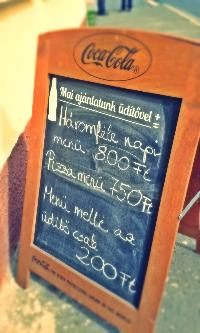 Coca-Cola
Mai ajánlatunk üdítővel +
Háromféle napi
menü 800Ft
Pizza menü 750Ft
Menü mellé az
üdítő csak
200Ft